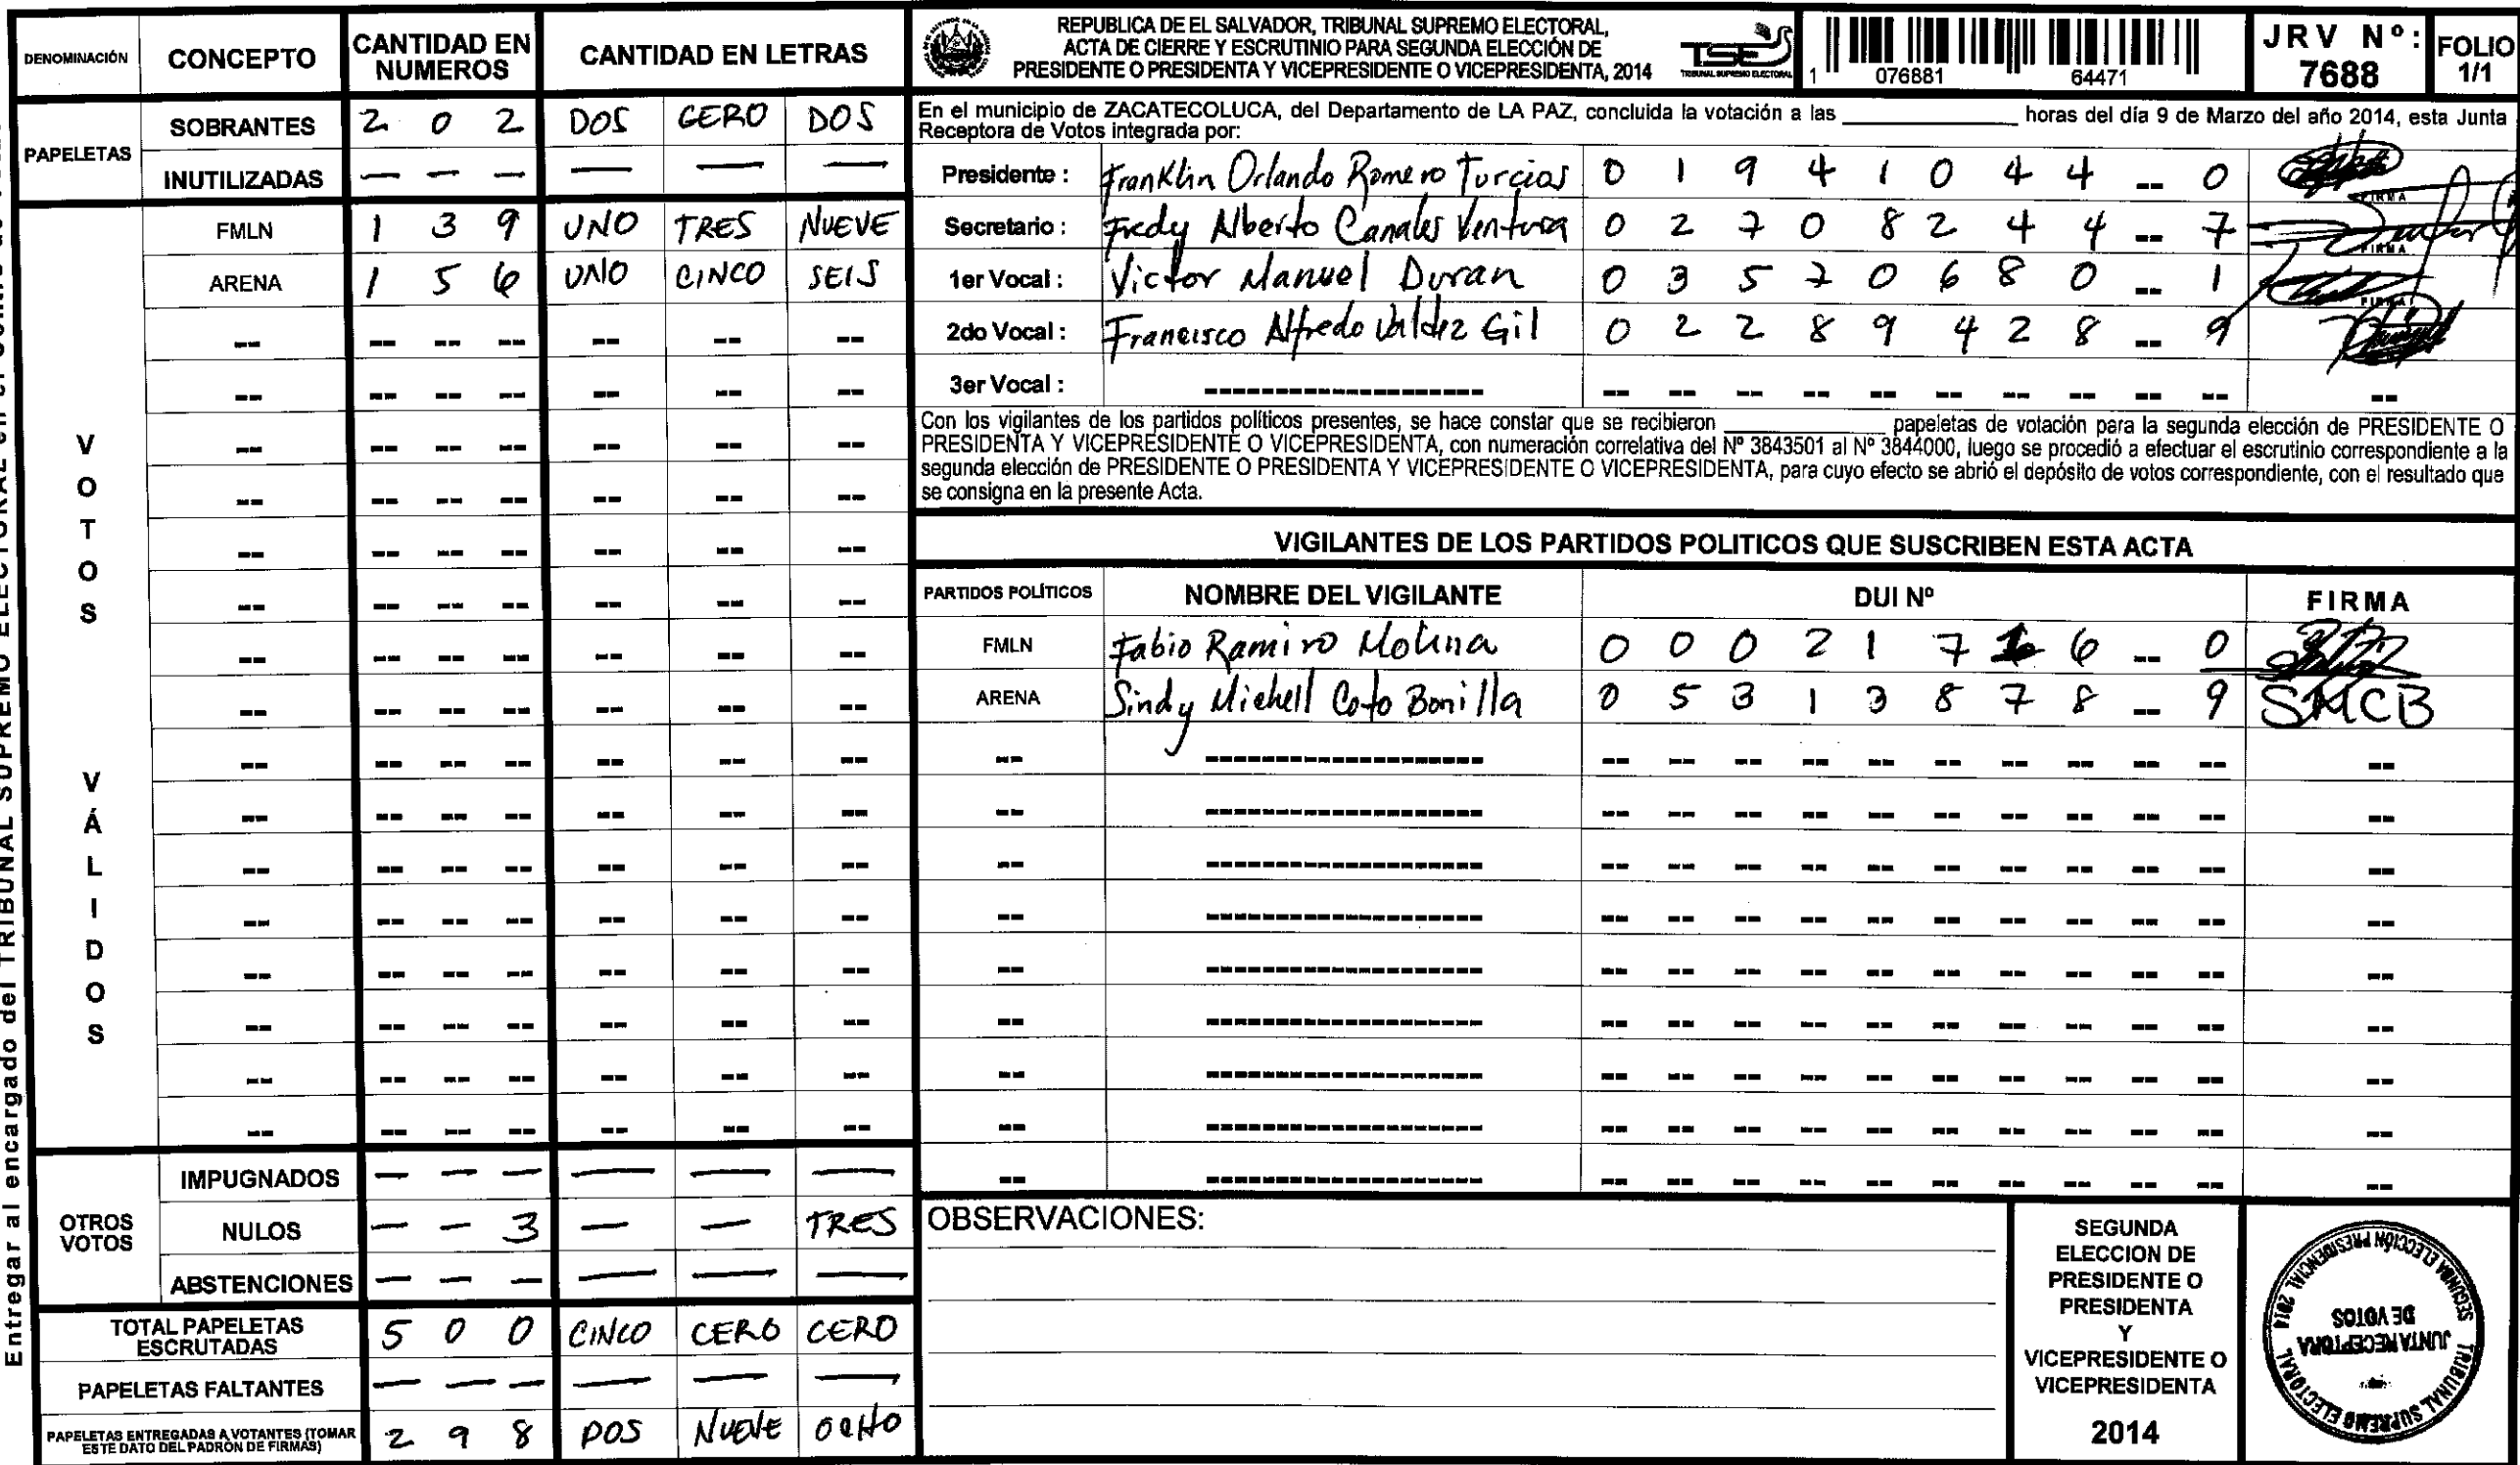 DENOMINACIÓN CONCEPTO CANTIDAD EN NUMEROS CANTIDAD EN LETRAS
PAPELETAS
SOBRANTES 2 0 2 DOS CERO DOS
INUTILIZADAS — — — — — —
VOTOS VÁLIDOS
FMLN 1 3 9 UNO TRES NUEVE
ARENA 1 5 6 UNO CINCO SEIS
OTROS VOTOS
IMPUGNADOS — — — — — —
NULOS — — 3 — — TRES
ABSTENCIONES — — — — — —
TOTAL PAPELETAS ESCRUTADAS 5 0 0 CINCO CERO CERO
PAPELETAS FALTANTES — — — — — —
PAPELETAS ENTREGADAS A VOTANTES (TOMAR ESTE DATO DEL PADRÓN DE FIRMAS) 2 9 8 DOS NUEVE OCHO
Entregar al encargado del TRIBUNAL SUPREMO ELECTORAL en el
REPUBLICA DE EL SALVADOR, TRIBUNAL SUPREMO ELECTORAL,
ACTA DE CIERRE Y ESCRUTINIO PARA SEGUNDA ELECCIÓN DE
PRESIDENTE O PRESIDENTA Y VICEPRESIDENTE O VICEPRESIDENTA, 2014
TSE
TRIBUNAL SUPREMO ELECTORAL
1 076881 64471
JRV Nº: 7688
FOLIO 1/1
En el municipio de ZACATECOLUCA, del Departamento de LA PAZ, concluida la votación a las ____ horas del día 9 de Marzo del año 2014, esta Junta
Receptora de Votos integrada por:
Presidente: Franklin Orlando Romero Turcios 0 1 9 4 1 0 4 4 -- 0 FIRMA
Secretario: Fredy Alberto Canales Ventura 0 2 7 0 8 2 4 4 -- 7 FIRMA
1er Vocal: Victor Manuel Duran 0 3 5 7 0 6 8 0 -- 1 FIRMA
2do Vocal: Francisco Alfredo Valdez Gil 0 2 2 8 9 4 2 8 -- 9
3er Vocal:
Con los vigilantes de los partidos políticos presentes, se hace constar que se recibieron ____ papeletas de votación para la segunda elección de PRESIDENTE O
PRESIDENTA Y VICEPRESIDENTE O VICEPRESIDENTA, con numeración correlativa del Nº 3843501 al Nº 3844000, luego se procedió a efectuar el escrutinio correspondiente a la
segunda elección de PRESIDENTE O PRESIDENTA Y VICEPRESIDENTE O VICEPRESIDENTA, para cuyo efecto se abrió el depósito de votos correspondiente, con el resultado que
se consigna en la presente Acta.
VIGILANTES DE LOS PARTIDOS POLITICOS QUE SUSCRIBEN ESTA ACTA
PARTIDOS POLÍTICOS NOMBRE DEL VIGILANTE DUI Nº FIRMA
FMLN Fabio Ramiro Molina 0 0 0 2 1 7 6 -- 0
ARENA Sindy Michell Coto Bonilla 0 5 3 1 3 8 7 8 -- 9 SMCB
OBSERVACIONES:
SEGUNDA
ELECCION DE
PRESIDENTE O
PRESIDENTA
Y
VICEPRESIDENTE O
VICEPRESIDENTA
2014
TRIBUNAL SUPREMO ELECTORAL
SEGUNDA ELECCIÓN PRESIDENCIAL 2014
JUNTA RECEPTORA
DE VOTOS